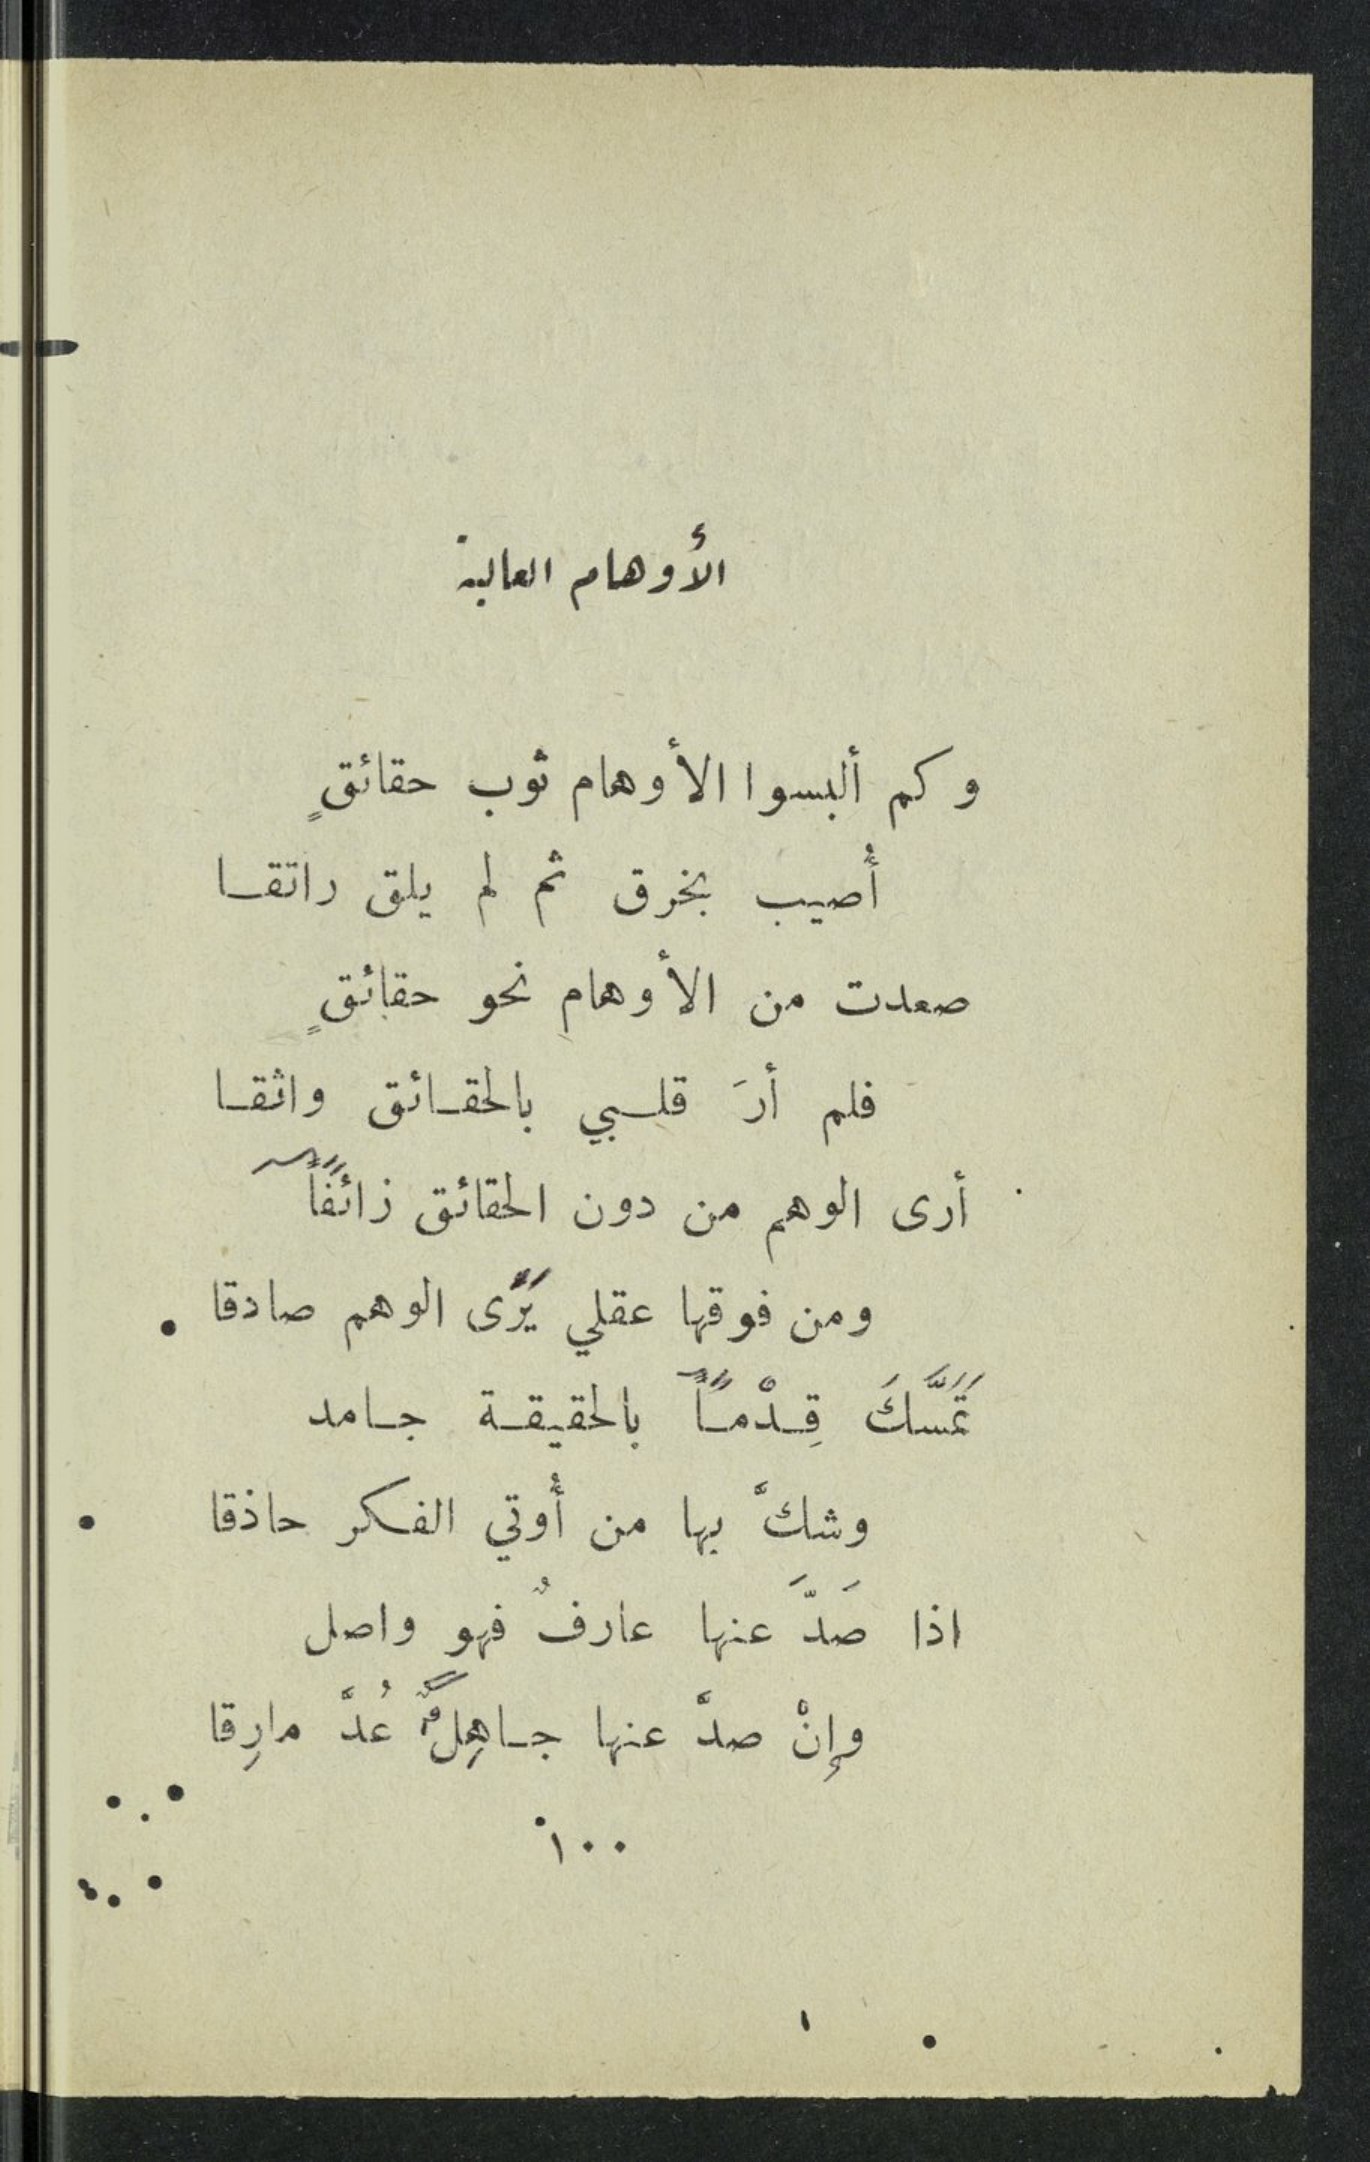 الأوهام العالية
وكم ألبسوا الأوهام ثوب حقائقٍ
أُصيب بخرق ثم لم يلق راتقا
صعدت من الأوهامِ نحو حقائقٍ
فلم أرَ قلبي بالحقائق واثقا
أرى الوهم من دون الحقائق زائفاً
ومن فوقها عقلي يَرَى الوهم صادقا
تَمَسَّكَ قِدْماً بالحقيقة جامد
وشكَّ بها من أُوتي الفكر حاذقا
اذا صَدَّ عنها عارفٌ فهو واصل
وإِنْ صدَّ عنها جاهِلٌ عُدَّ مارِقا
١٠٠